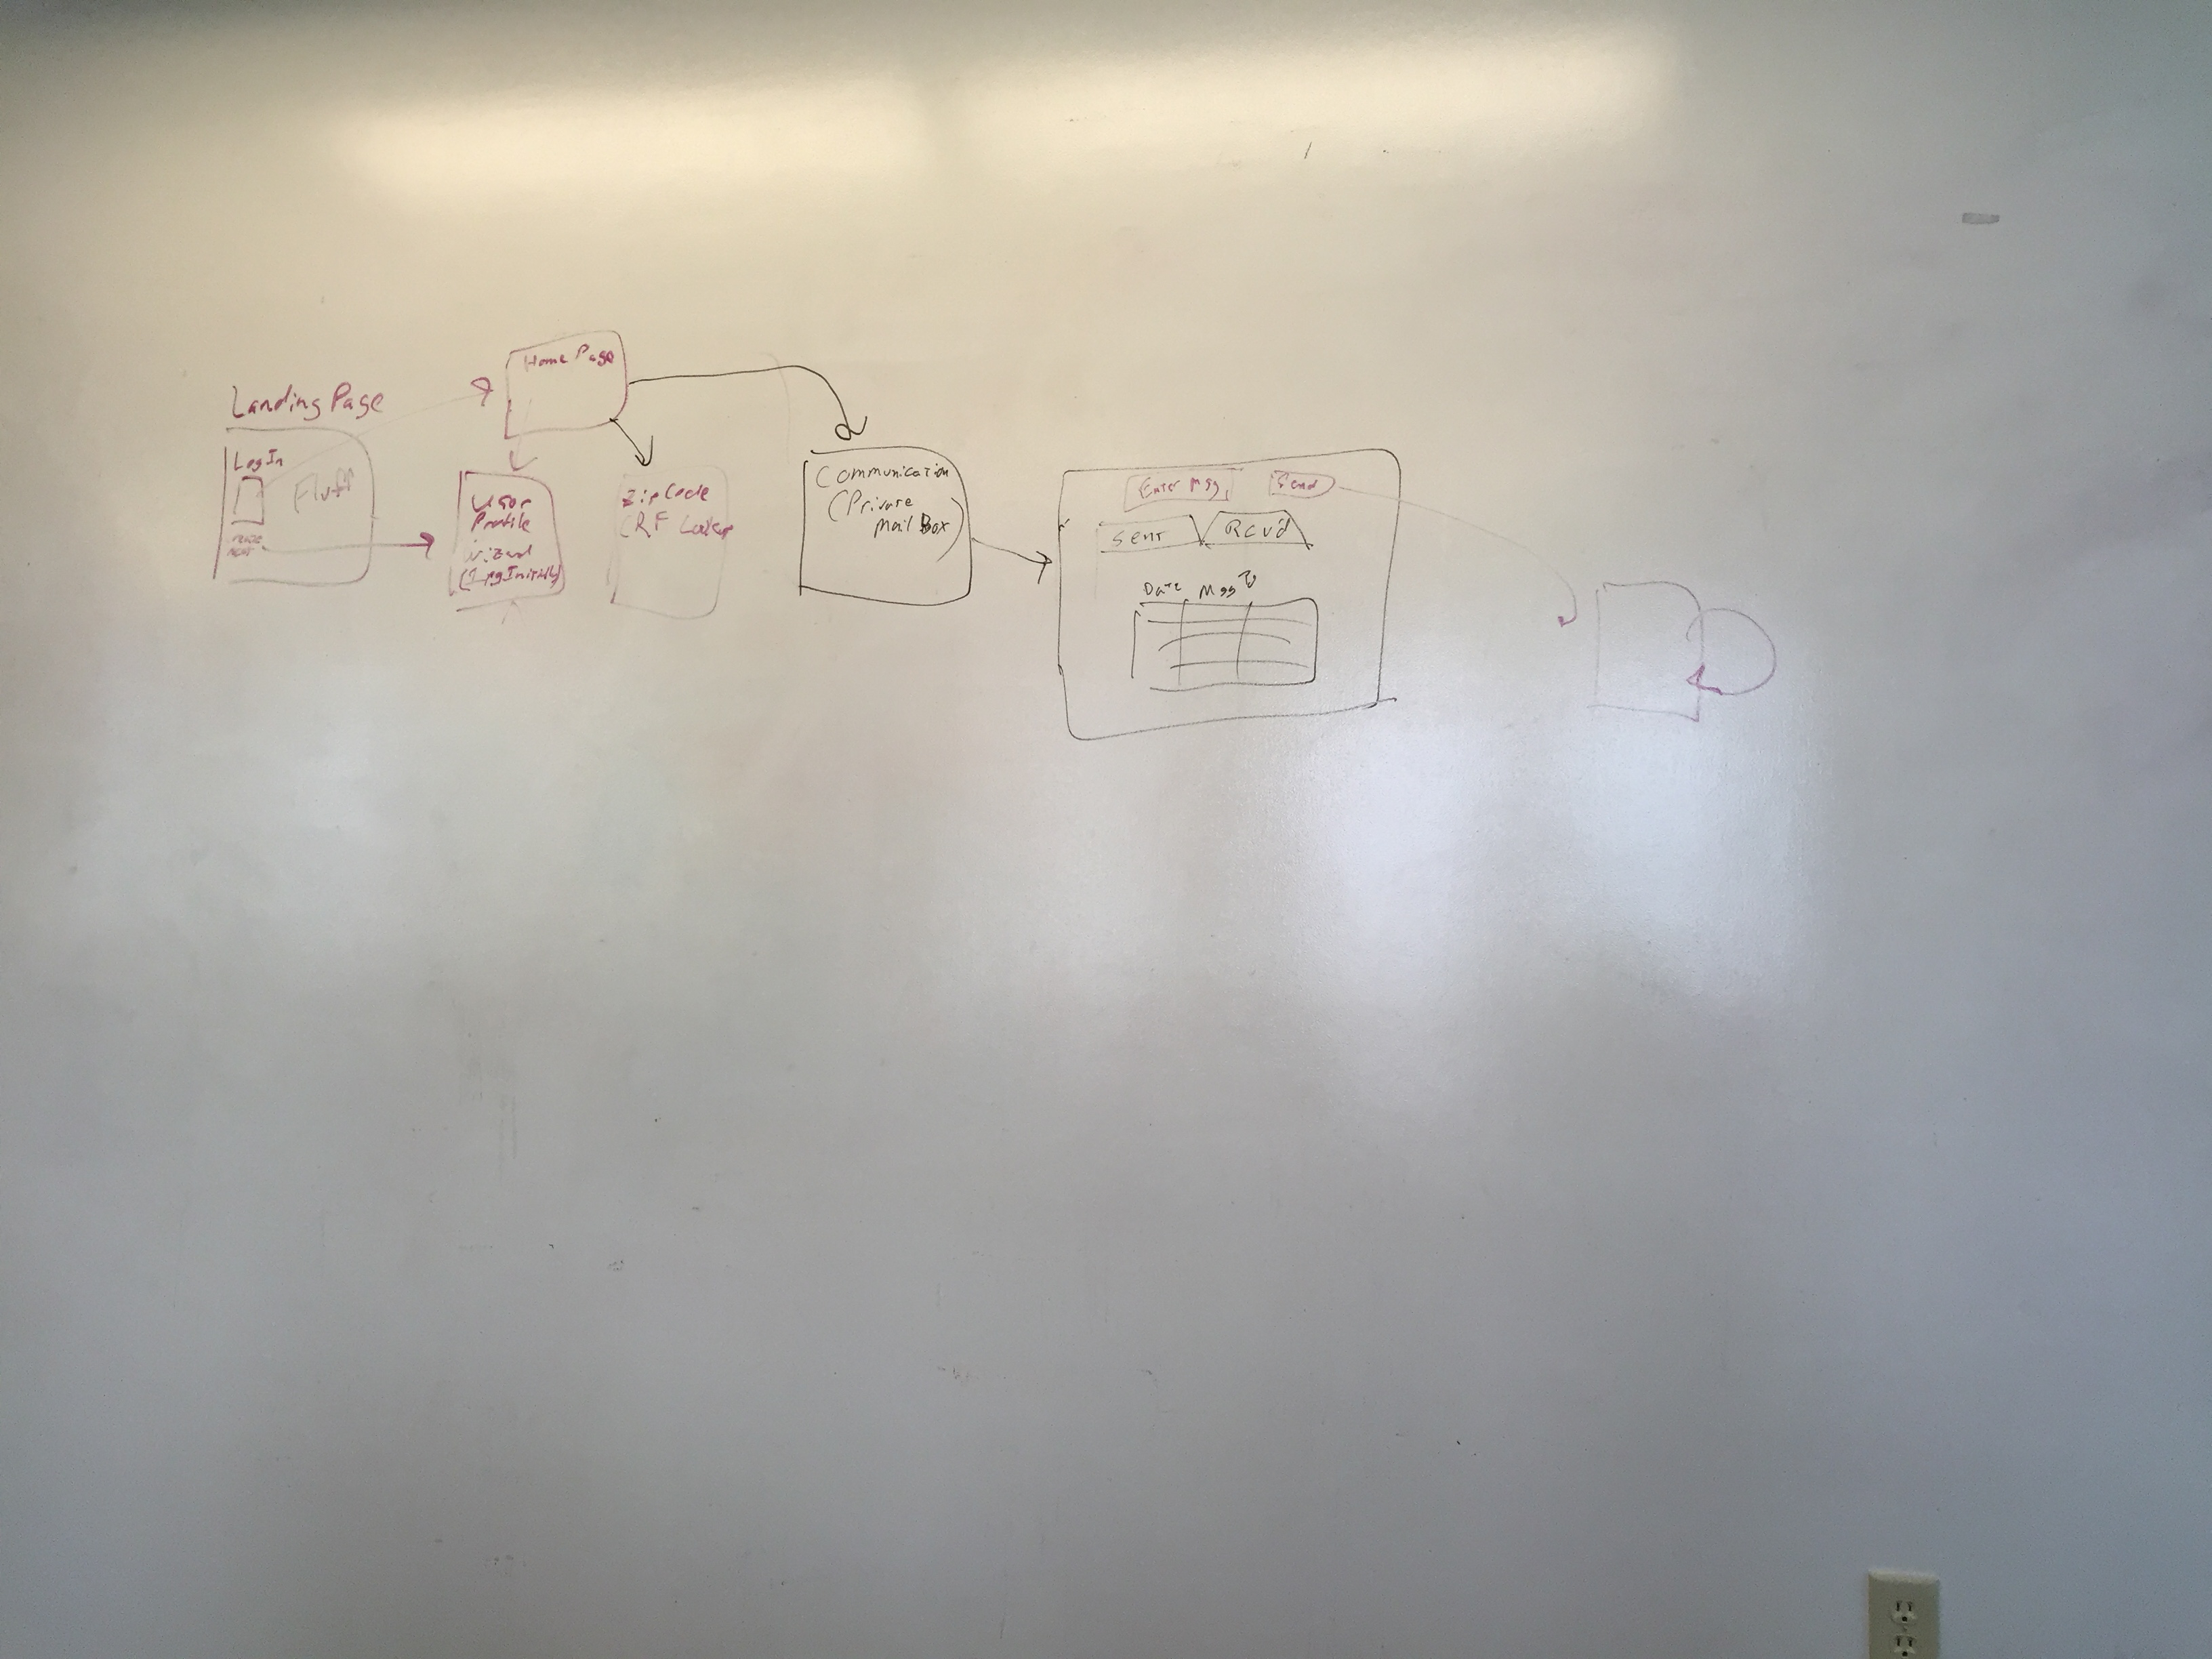 Landing Page
LogIn
Fluff
Home Page
User
Profile
Wizard
(1 pg Initially)
Zip Code
Communication
(Private
Mail Box)
Enter Msg
Send
Sent
Rcv'd
Date Msg